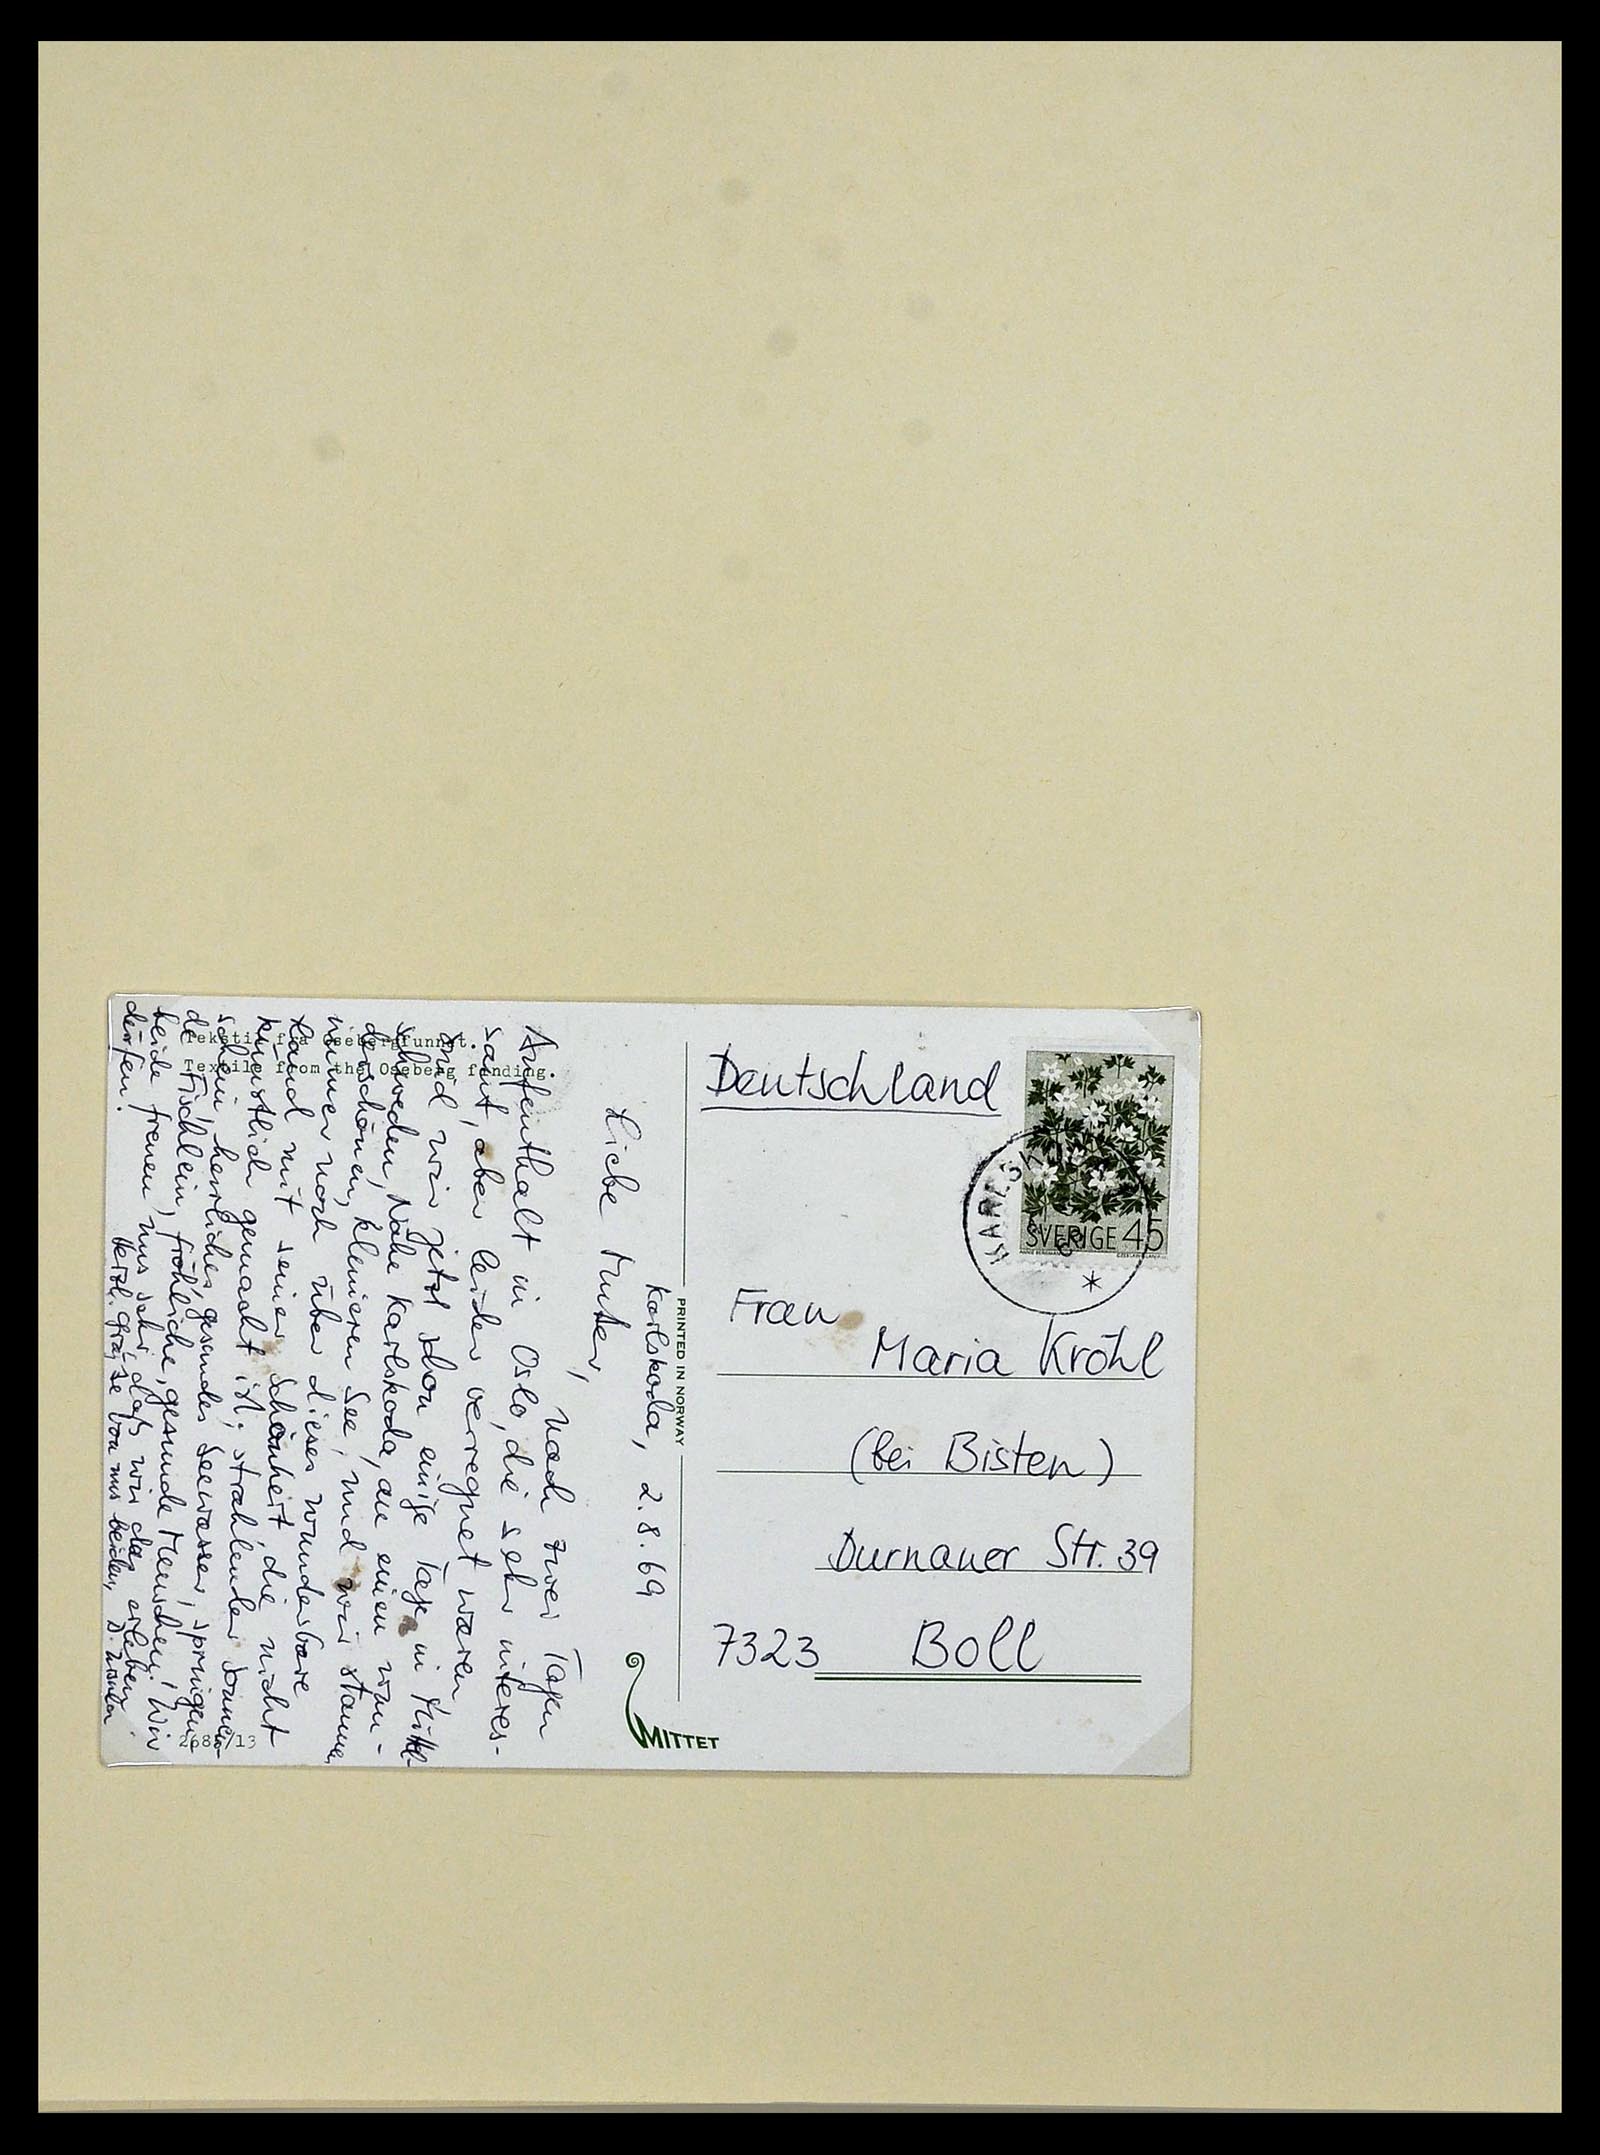 Tekstil fra Osebergfunnet.
Textile from the Oseberg finding.
Karlskoda, 2.8.69
Liebe Mutter,
Nach zwei Tagen
Aufenthalt in Oslo, die sehr interes-
sant, aber leider verregnet waren
sind wir jetzt schon einige Tage in Mittel-
schweden, Nähe Karlskoda, an einem wun-
derschönen, kleineren See, und wir staunen
immer noch über dieses wunderbare
Land mit seiner Schönheit, die nicht
künstlich gemacht ist; strahlender Sonnen-
schein, herrliches, gesundes Seewasser, springen-
de Fischlein, fröhliche, gesunde Menschen! Wir
beide freuen uns sehr, daß wir das erleben
dürfen!
Herzl. Grüsse von uns beiden,
2685/13
PRINTED IN NORWAY
MITTET
Deutschland
SVERIGE 45
KARLSKOGA
Frau
Maria Kröhl
(bei Bisten)
Durnauer Str. 39
7323 Boll